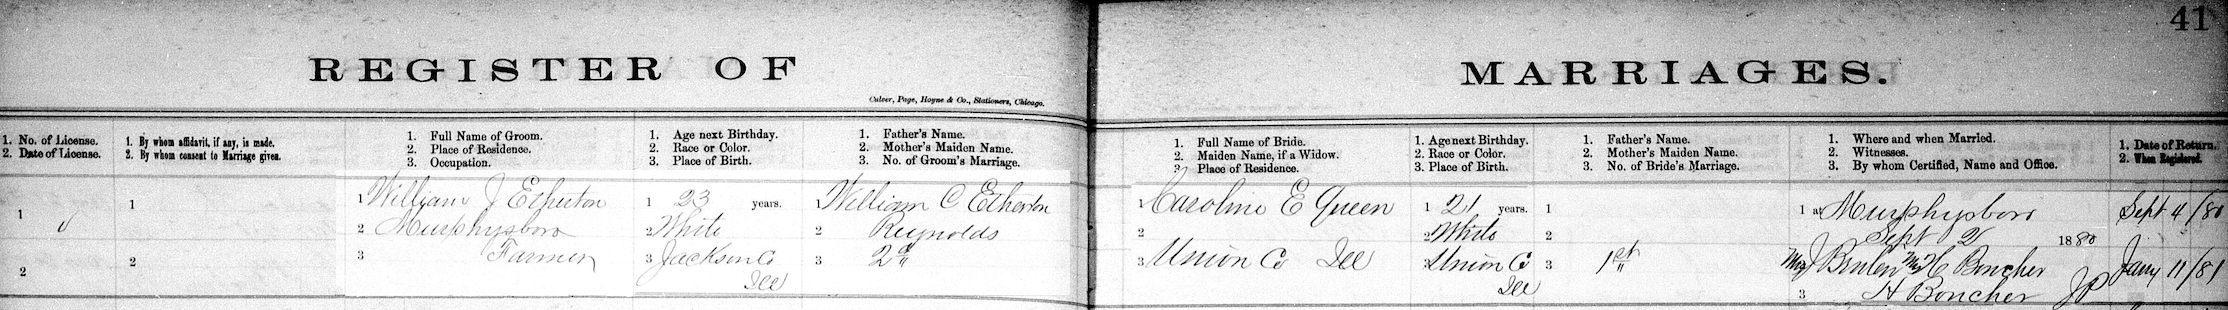 41
REGISTER OF MARRIAGES.
Culver, Page, Hoyne & Co., Stationers, Chicago.
1. No. of License.
2. Date of License.
1. By whom affidavit, if any, is made.
2. By whom consent to Marriage given.
1. Full Name of Groom.
2. Place of Residence.
3. Occupation.
1. Age next Birthday.
2. Race or Color.
3. Place of Birth.
1. Father's Name.
2. Mother's Maiden Name.
3. No. of Groom's Marriage.
1. Full Name of Bride.
2. Maiden Name, if a Widow.
3. Place of Residence.
1. Age next Birthday.
2. Race or Color.
3. Place of Birth.
1. Father's Name.
2. Mother's Maiden Name.
3. No. of Bride's Marriage.
1. Where and when Married.
2. Witnesses.
3. By whom Certified, Name and Office.
1. Date of Return.
2. When Registered.
1 "
2
1
2
1 William J Etherton
2 Murphysboro
3 Farmer
1 23 years.
2 White
3 Jackson Co
Ill
1 William C Etherton
2 Reynolds
3 2d "
1 Caroline E Queen
2
3 Union Co Ill
1 21 years.
2 White
3 Union Co
Ill
1
2
3 1st "
1 at Murphysboro
Sept 2 1880
J H Boucher
3 H Boucher JP
Sept 4/80
Jany 11/81